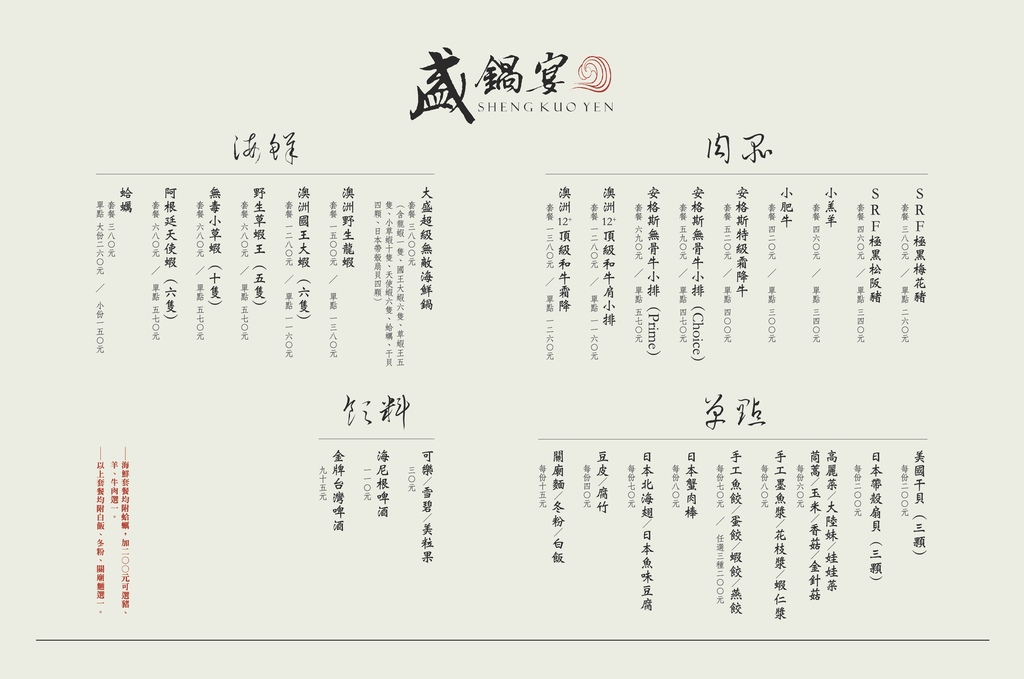 盛鍋宴
SHENG KUO YEN
肉品
SRF極黑梅花豬
套餐 三八〇元 ／ 單點 二六〇元
SRF極黑松阪豬
套餐 四六〇元 ／ 單點 三四〇元
小羔羊
套餐 四六〇元 ／ 單點 三四〇元
小肥牛
套餐 四二〇元 ／ 單點 三〇〇元
安格斯特級霜降牛
套餐 五二〇元 ／ 單點 四〇〇元
安格斯無骨牛小排（Choice）
套餐 五九〇元 ／ 單點 四七〇元
安格斯無骨牛小排（Prime）
套餐 六九〇元 ／ 單點 五七〇元
澳洲12+頂級和牛肩小排
套餐 一二八〇元 ／ 單點 一一六〇元
澳洲12+頂級和牛霜降
套餐 一三八〇元 ／ 單點 一二六〇元
海鮮
大盛超級無敵海鮮鍋
套餐 三八〇〇元
（含龍蝦一隻、國王大蝦六隻、草蝦王五
隻、小草蝦十隻、天使蝦六隻、蛤蠣、干貝
四顆、日本帶殼扇貝四顆）
澳洲野生龍蝦
套餐 一五〇〇元 ／ 單點 一三八〇元
澳洲國王大蝦（六隻）
套餐 一二八〇元 ／ 單點 一一六〇元
野生草蝦王（五隻）
套餐 六八〇元 ／ 單點 五七〇元
無毒小草蝦（十隻）
套餐 六八〇元 ／ 單點 五七〇元
阿根廷天使蝦（六隻）
套餐 六八〇元 ／ 單點 五七〇元
蛤蠣
套餐 三八〇元
單點 大份二六〇元 ／ 小份一五〇元
單點
美國干貝（三顆）
每份二〇〇元
日本帶殼扇貝（三顆）
每份二〇〇元
高麗菜／大陸妹／娃娃菜
茼蒿／玉米／香菇／金針菇
每份六〇元
手工墨魚漿／花枝漿／蝦仁漿
每份八〇元
手工魚餃／蛋餃／蝦餃／燕餃
每份七〇元 ／ 任選三種二〇〇元
日本蟹肉棒
每份八〇元
日本北海翅／日本魚味豆腐
每份七〇元
豆皮／腐竹
每份四〇元
關廟麵／冬粉／白飯
每份十五元
飲料
可樂／雪碧／美粒果
三〇元
海尼根啤酒
一一〇元
金牌台灣啤酒
九十五元
──海鮮套餐均附蛤蠣，加二〇〇元可選豬、
羊、牛肉選一。
──以上套餐均附白飯、冬粉、關廟麵選一。